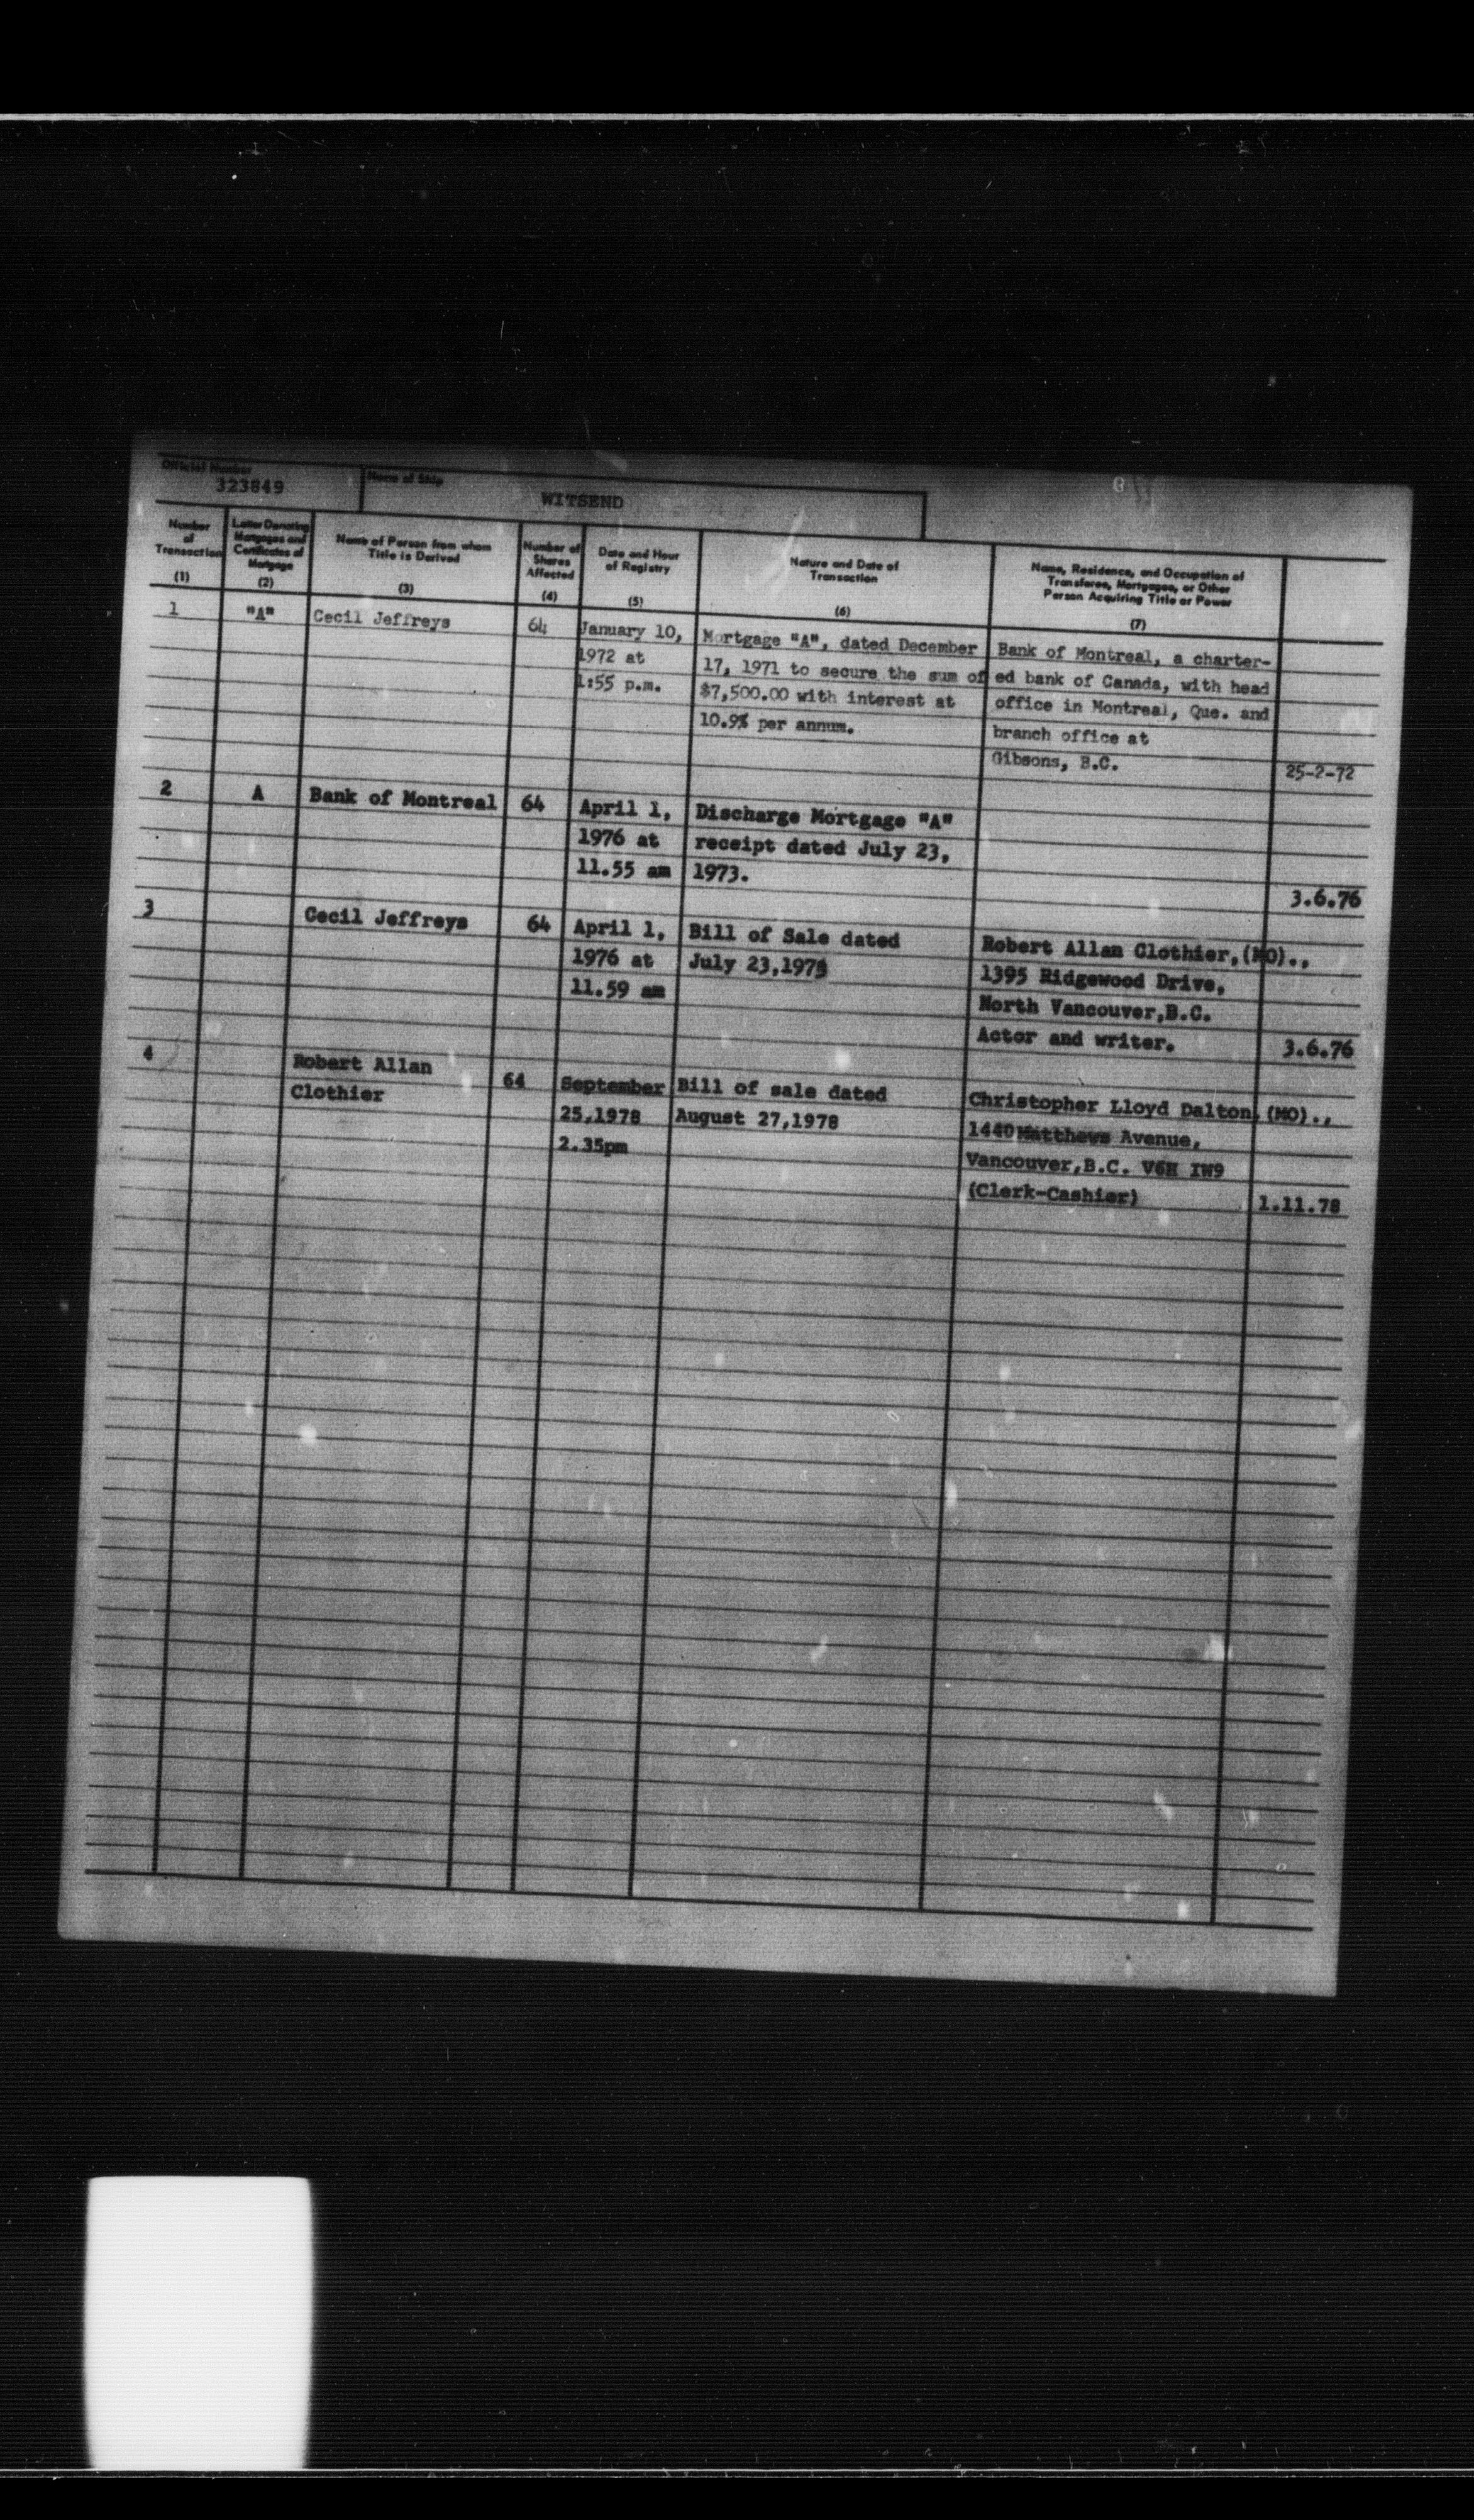 Official Number
323849
Name of Ship
WITSEND
Number of Transaction
(1)
Letter Denoting Mortgages and Certificates of Mortgage
(2)
Name of Person from whom Title is Derived
(3)
Number of Shares Affected
(4)
Date and Hour of Registry
(5)
Nature and Date of Transaction
(6)
Name, Residence, and Occupation of Transferee, Mortgagee, or Other Person Acquiring Title or Power
(7)
1
"A"
Cecil Jeffreys
64
January 10,
1972 at
1:55 p.m.
Mortgage "A", dated December
17, 1971 to secure the sum of
$7,500.00 with interest at
10.9% per annum.
Bank of Montreal, a charter-
ed bank of Canada, with head
office in Montreal, Que. and
branch office at
Gibsons, B.C.
25-2-72
2
A
Bank of Montreal
64
April 1,
1976 at
11.55 am
Discharge Mortgage "A"
receipt dated July 23,
1973.
3.6.76
3
Cecil Jeffreys
64
April 1,
1976 at
11.59 am
Bill of Sale dated
July 23,
Robert Allan Clothier,(MO).,
1395 Ridgewood Drive,
North Vancouver,B.C.
Actor and writer.
3.6.76
4
Robert Allan
Clothier
64
September
25,1978
2.35pm
Bill of sale dated
August 27,1978
Christopher Lloyd Dalton,(MO).,
1440 Matthews Avenue,
Vancouver,B.C. V6H IW9
(Clerk-Cashier)
1.11.78